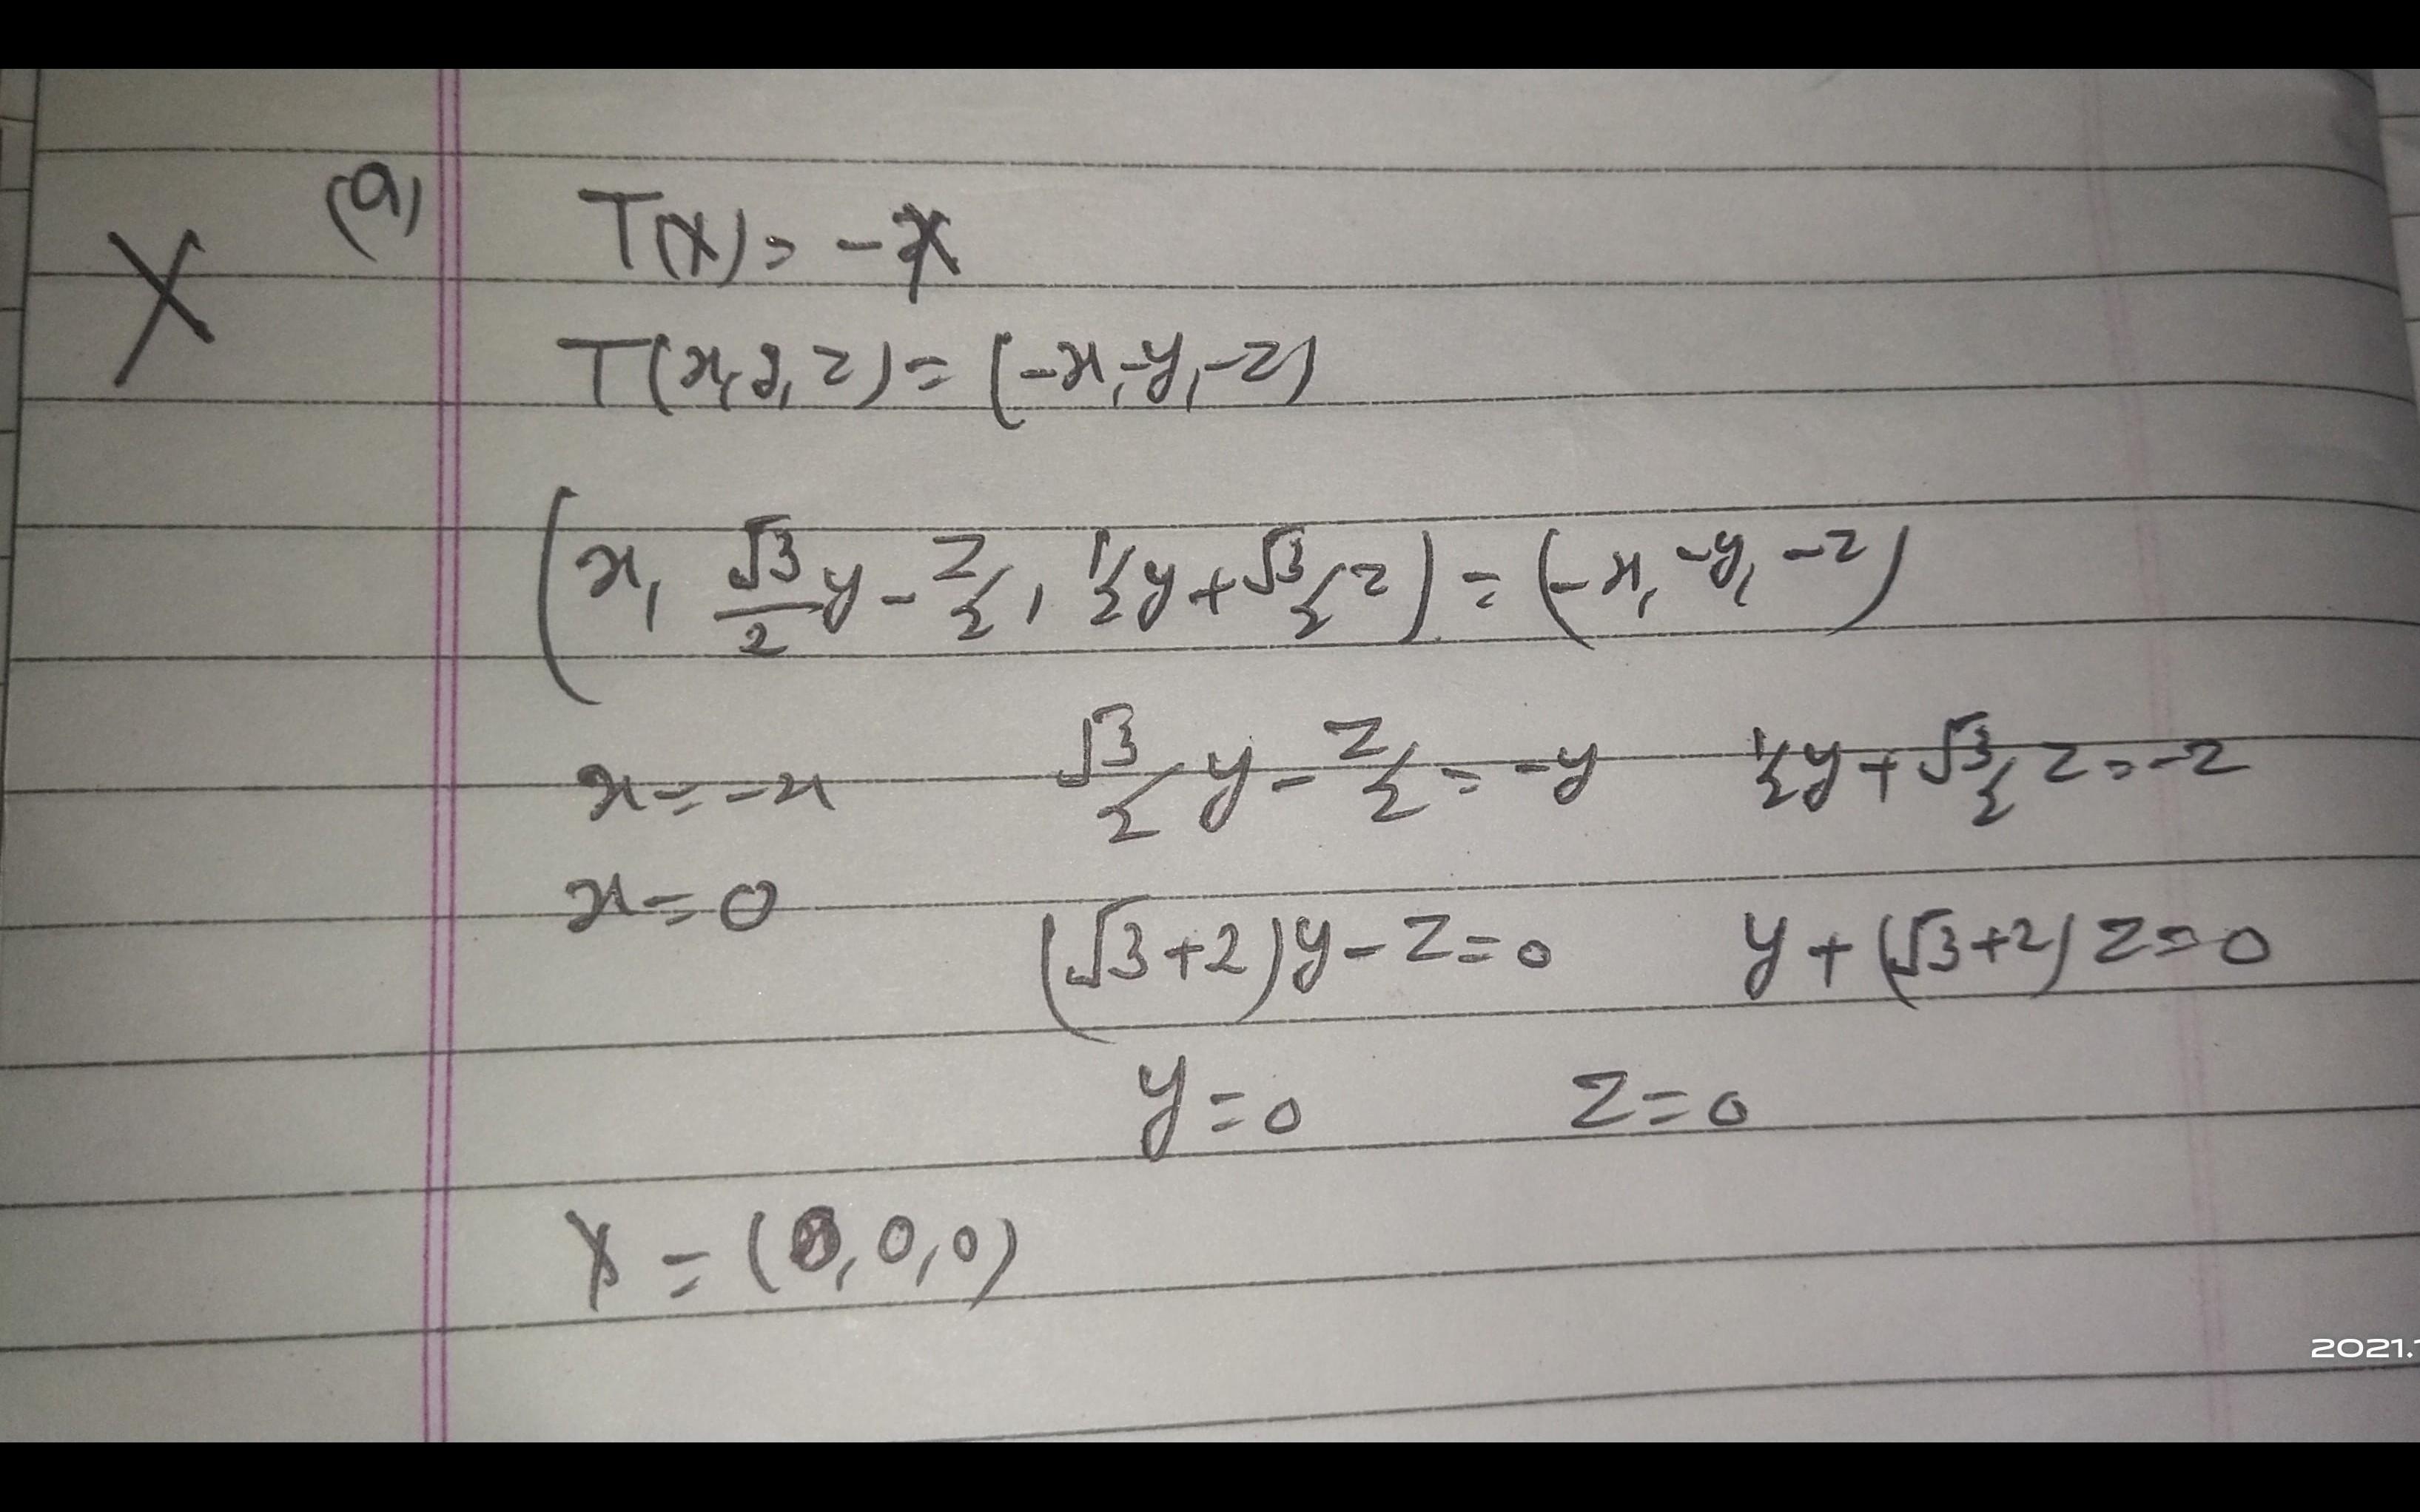 (a)
X
T(X) = -X
T(x, y, z) = (-x, -y, -z)
(x, √3/2 y - z/2, 1/2 y + √3/2 z) = (-x, -y, -z)
x = -x √3/2 y - z/2 = -y 1/2 y + √3/2 z = -z
x = 0 (√3+2)y - z = 0 y + (√3+2) z = 0
y = 0 z = 0
X = (0, 0, 0)
2021.1